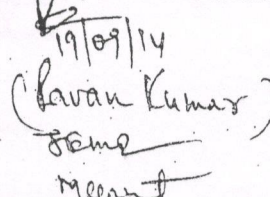 19/09/14
(Pavan Kumar)
JEME
Meerut